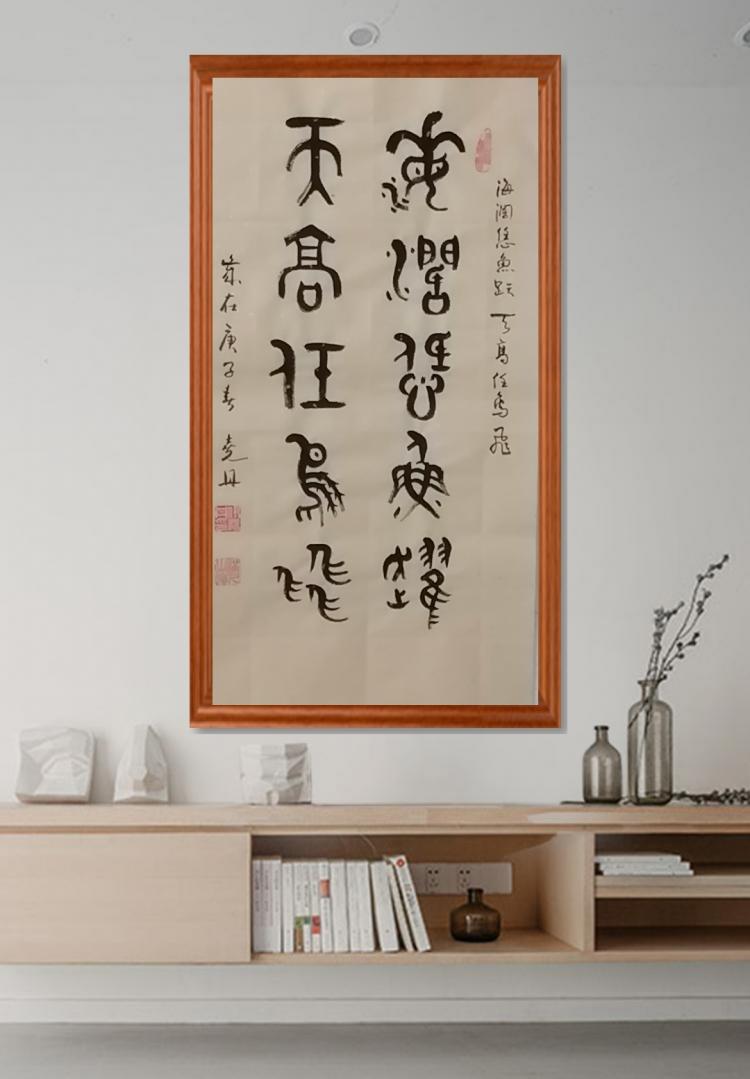 海闊憑魚跃天高任鸟飛
海闊憑魚躍
天高任鳥飛
歲在庚子春